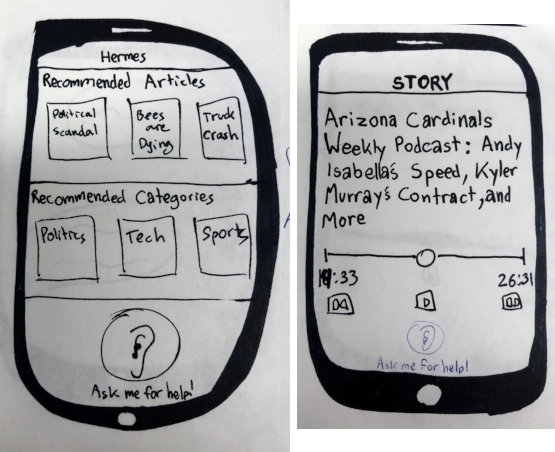 Hermes
Recommended Articles
Political Scandal
Bees are Dying
Truck Crash
Recommended Categories
Politics
Tech
Sports
Ask me for help!
STORY
Arizona Cardinals
Weekly Podcast: Andy
Isabella's Speed, Kyler
Murray's Contract, and
More
26:31
Ask me for help!